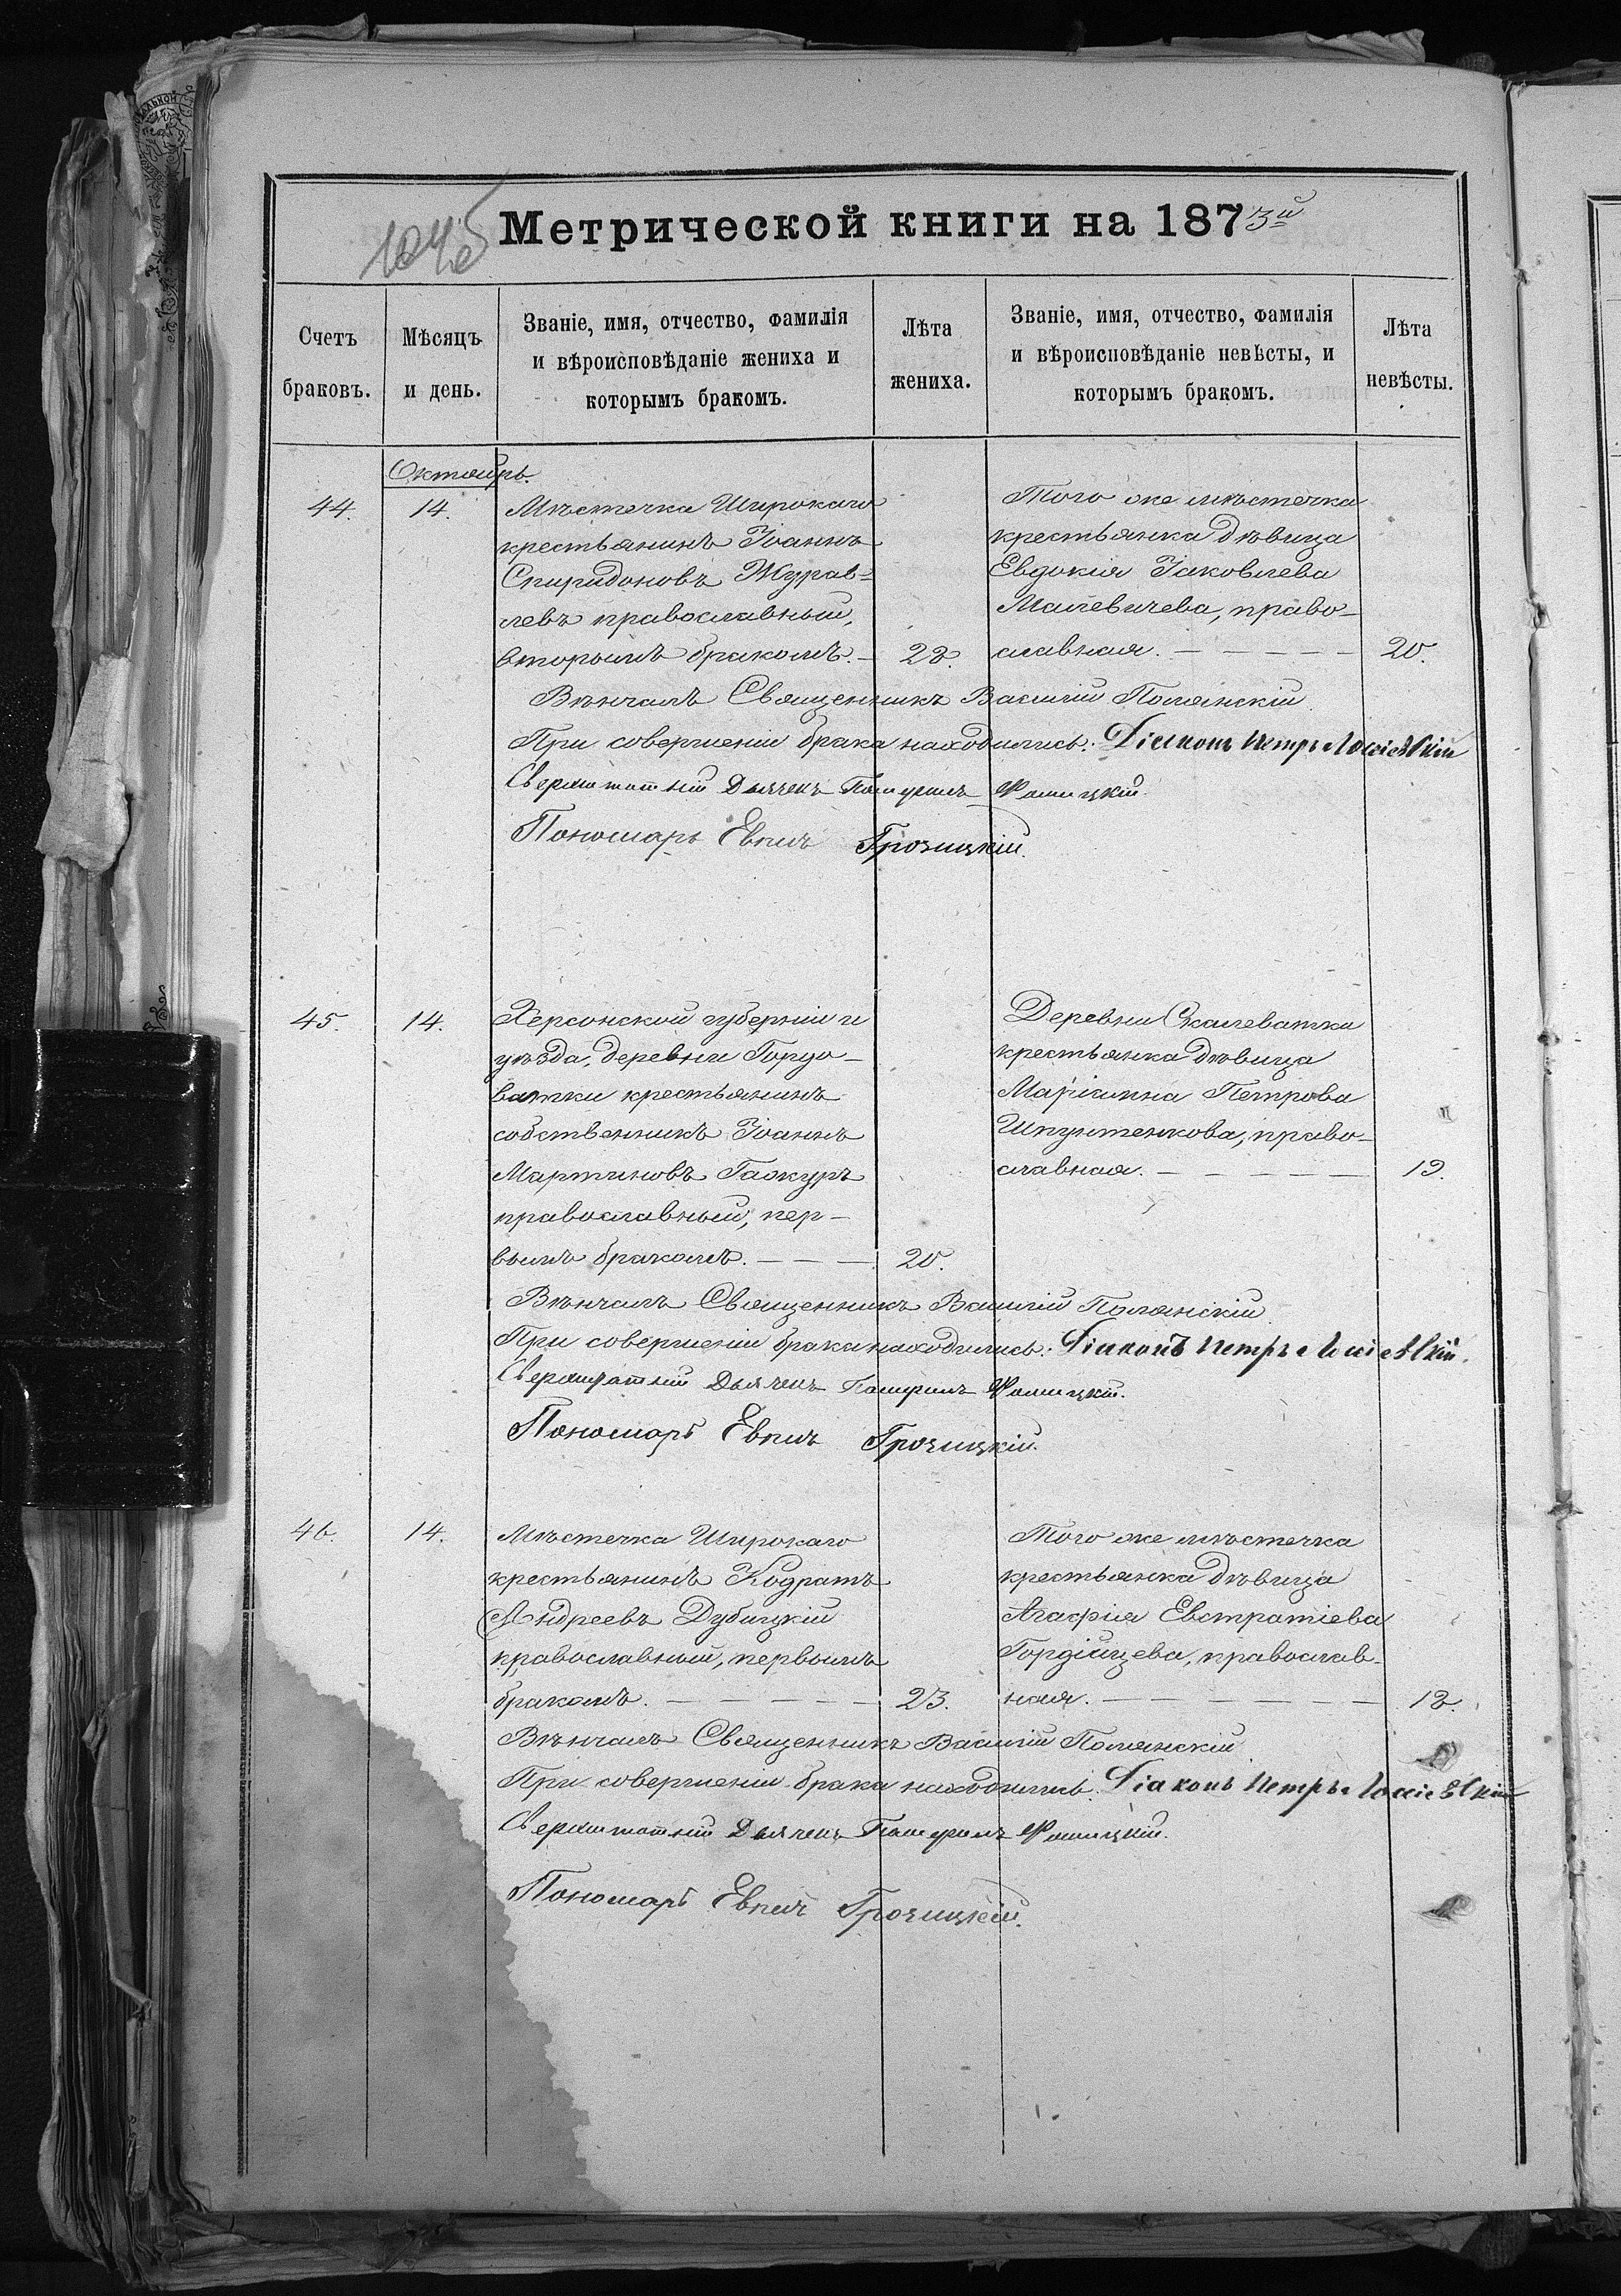 Метрической книги на 1873й
Счетъ браковъ.
Мѣсяцъ и день.
Званіе, имя, отчество, фамилія
и вѣроисповѣданіе жениха и
которымъ бракомъ.
Лѣта
жениха.
Званіе, имя, отчество, фамилія
и вѣроисповѣданіе невѣсты, и
которымъ бракомъ.
Лѣта
невѣсты.
Октябрь.
44. 14.
Мѣстечка Широкаго
крестьянинъ Іоаннъ
Спиридоновъ Журав=
левъ православный,
вторымъ бракомъ. — 28.
Того же мѣстечка
крестьянка дѣвица
Евдокія Іаковлева
Малевичева, право-
славная. — — — — — 20.
Вѣнчалъ Священникъ Василій Полянскій.
При совершеніи брака находились: Діаконъ Петръ
Сверхштатный Дьячекъ
Пономарь Грозицкій.
45. 14.
Херсонской губерніи и
уѣзда, деревни Гордо-
ватки крестьянинъ
собственникъ Іоаннъ
Мартиновъ Гажуръ
православный, пер-
вымъ бракомъ. — — — 20.
Деревни Скалеватки
крестьянка дѣвица
Маріамна Петрова
Шпунтенкова, право-
славная. — — — — — 19.
Вѣнчалъ Священникъ Василій Полянскій.
При совершеніи брака находились: Діаконъ Петръ
Сверхштатный Дьячекъ
Пономарь Грозицкій.
46. 14.
Мѣстечка Широкаго
крестьянинъ Кодратъ
Андреевъ Дубицкій
православный, первымъ
бракомъ. — — — — — 23.
Того же мѣстечка
крестьянка дѣвица
Агафія Евстратіева
Гордійцева, православ-
ная. — — — — — 18.
Вѣнчалъ Священникъ Василій Полянскій.
При совершеніи брака находились: Діаконъ Петръ
Сверхштатный Дьячекъ
Пономарь Грозицкій.